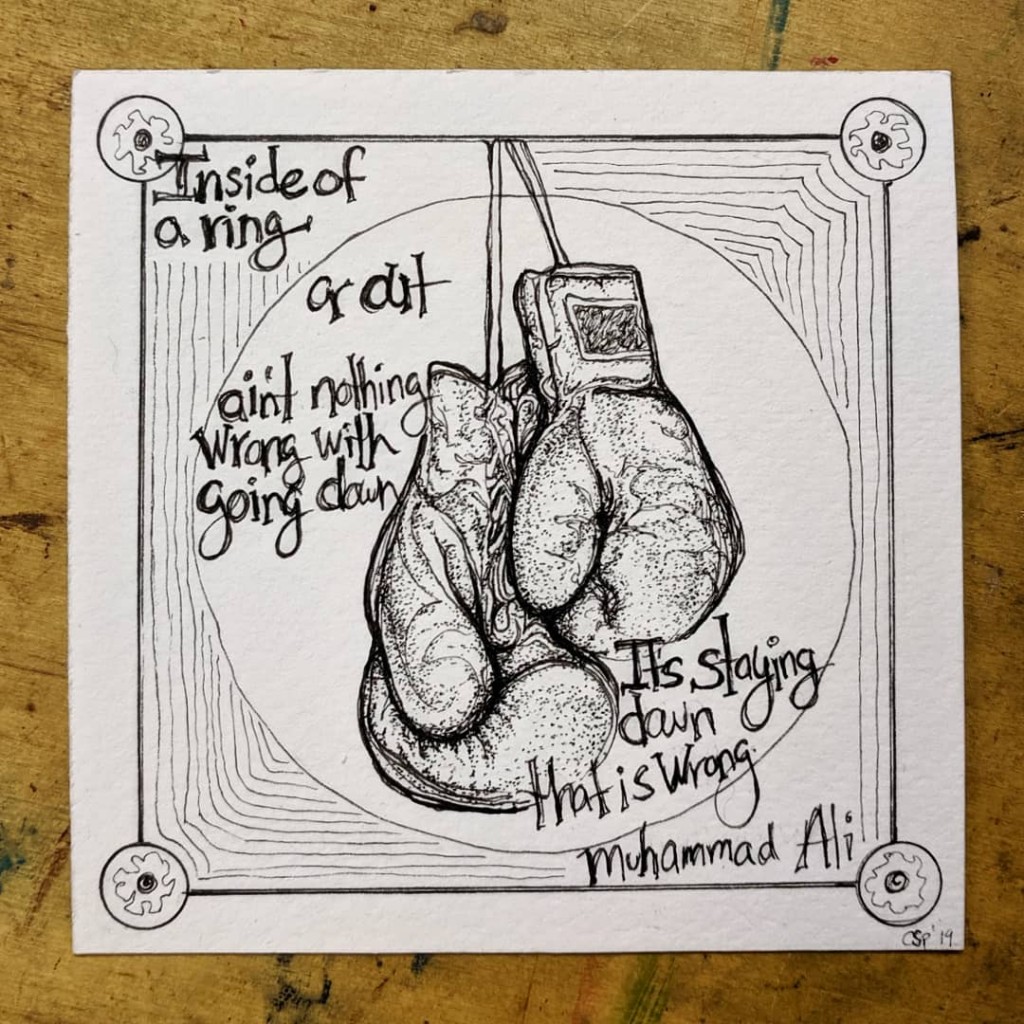 Inside of
a ring
or out
ain't nothing
wrong with
going down
It's staying
down
that is wrong
muhammad Ali
CSP'19